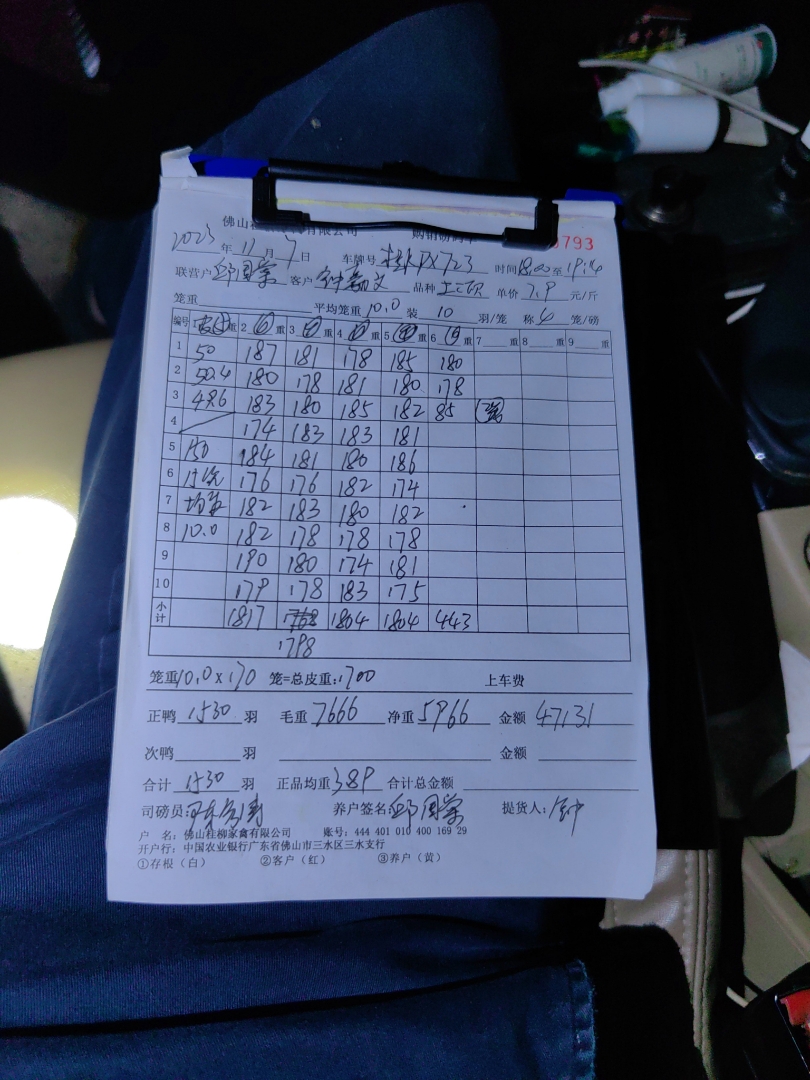 佛山桂 有限公司 购销 793
2023年11月7日 车牌号 时间18:00至19:14
联营户邱国 客户 品种 单价7.9元/斤
笼重 平均笼重10.0装10羽/笼 称 笼/磅
编号 1 重 2 重 3 重 4 重 5 重 6 重 7 重 8 重 9 重
1 50 187 181 178 185 180
2 50.4 180 178 181 180 178
3 49.6 183 180 185 182 85
4 174 183 183 181
5 150 184 181 180 186
6 176 176 182 174
7 182 183 180 182
8 10.0 182 178 178 178
9 190 180 174 181
10 179 178 183 175
小计 1817 1804 1804 443
1798
笼重10.0×170 笼=总皮重:1700 上车费
正鸭1530羽 毛重7666 净重5966 金额47131
次鸭 羽 金额
合计1530羽 正品均重3.89 合计总金额
司磅员: 养户签名:邱国 提货人:钟
户 名:佛山桂柳家禽有限公司 账号:444 401 010 400 169 29
开户行:中国农业银行广东省佛山市三水区三水支行
①存根(白) ②客户(红) ③养户(黄)